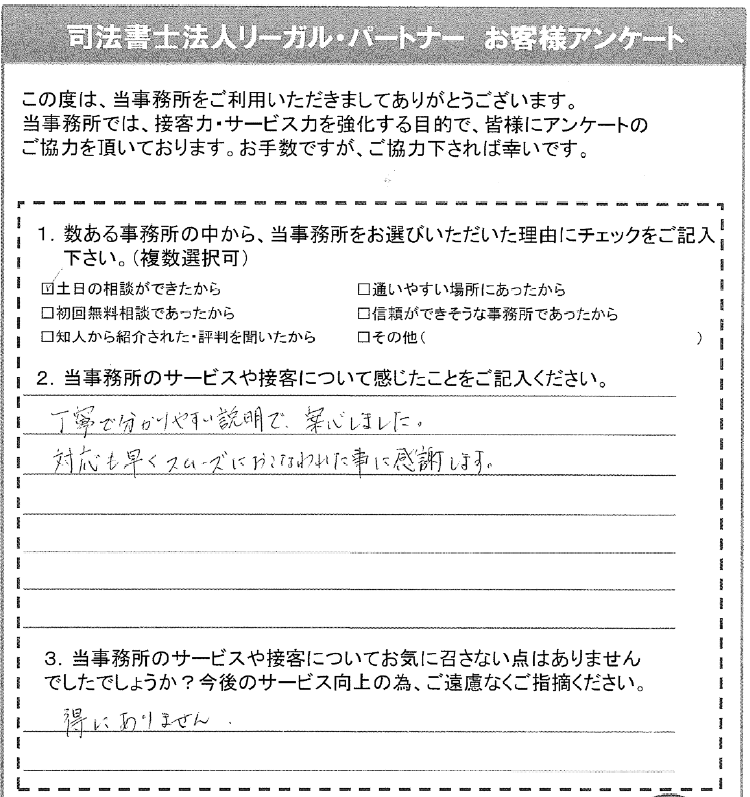 司法書士法人リーガル・パートナー お客様アンケート
この度は、当事務所をご利用いただきましてありがとうございます。
当事務所では、接客力・サービス力を強化する目的で、皆様にアンケートの
ご協力を頂いております。お手数ですが、ご協力下されば幸いです。
1. 数ある事務所の中から、当事務所をお選びいただいた理由にチェックをご記入
下さい。(複数選択可)
☑土日の相談ができたから □通いやすい場所にあったから
□初回無料相談であったから □信頼ができそうな事務所であったから
□知人から紹介された・評判を聞いたから □その他( )
2. 当事務所のサービスや接客について感じたことをご記入ください。
丁寧で分かりやすい説明で、案心しました。
対応も早くスムーズにおこなわれた事に感謝します。
3. 当事務所のサービスや接客についてお気に召さない点はありません
でしたでしょうか?今後のサービス向上の為、ご遠慮なくご指摘ください。
得にありません.